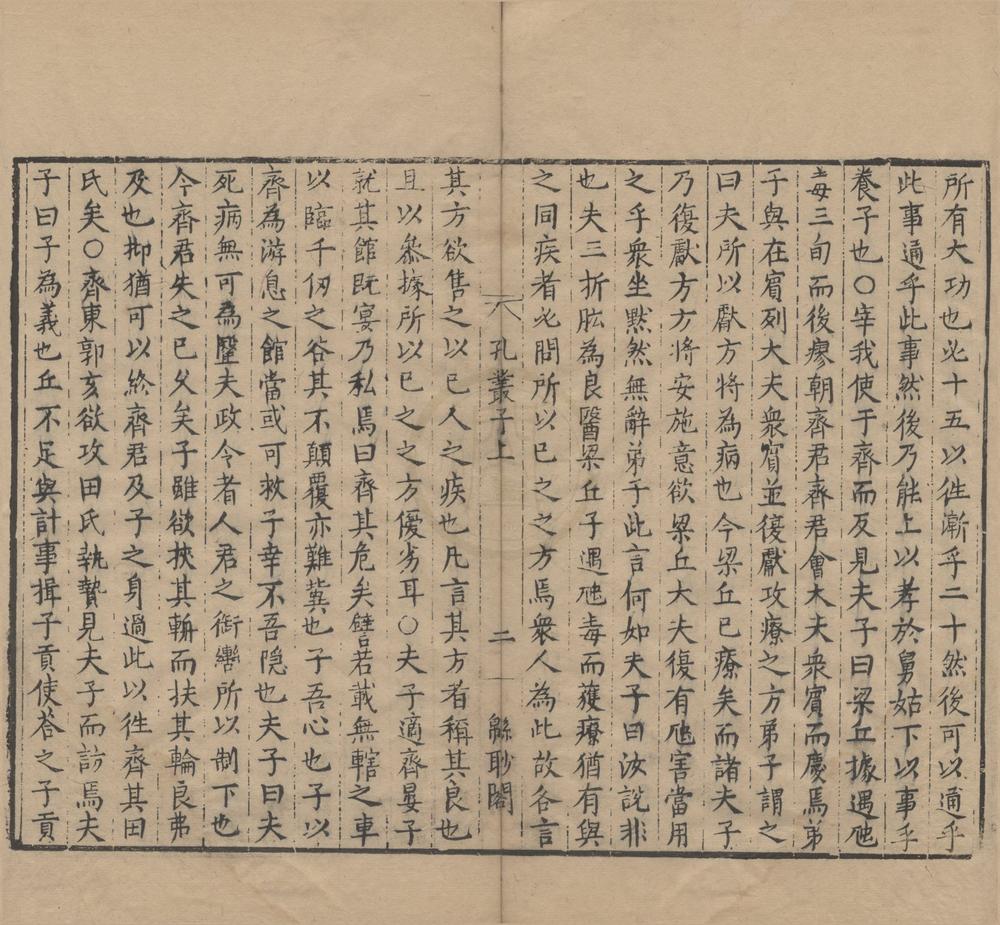 所有大功也必十五以徃漸乎二十然後可以通乎
此事通乎此事然後乃能上以孝於舅姑下以事乎
養子也○宰我使于齊而反見夫子曰梁丘據遇虺
毒三旬而後瘳朝齊君齊君會大夫衆賔而慶焉弟
子與在賔列大夫衆賔並復獻攻療之方弟子謂之
曰夫所以獻方將為病也今梁丘已療矣而諸夫子
乃復獻方方將安施意欲梁丘大夫復有虺害當用
之乎衆坐黙然無辭弟子此言何如夫子曰汝說非
也夫三折肱為良醫梁丘子遇虺毒而獲療猶有與
之同疾者必問所以已之之方焉衆人為此故各言
孔叢子上
二
緜眇閣
其方欲售之以已人之疾也凡言其方者稱其良也
且以叅據所以已之之方優劣耳○夫子適齊晏子
就其館既宴乃私焉曰齊其危矣譬若載無轄之車
以臨千仞之谷其不顛覆亦難冀也子吾心也子以
齊為游息之館當或可救子幸不吾隐也夫子曰夫
死病無可為毉夫政令者人君之銜轡所以制下也
今齊君失之已乆矣子雖欲挾其輈而扶其輪良弗
及也抑猶可以終齊君及子之身過此以徃齊其田
氏矣○齊東郭亥欲攻田氏執贄見夫子而訪焉夫
子曰子為義也丘不足與計事揖子貢使荅之子貢